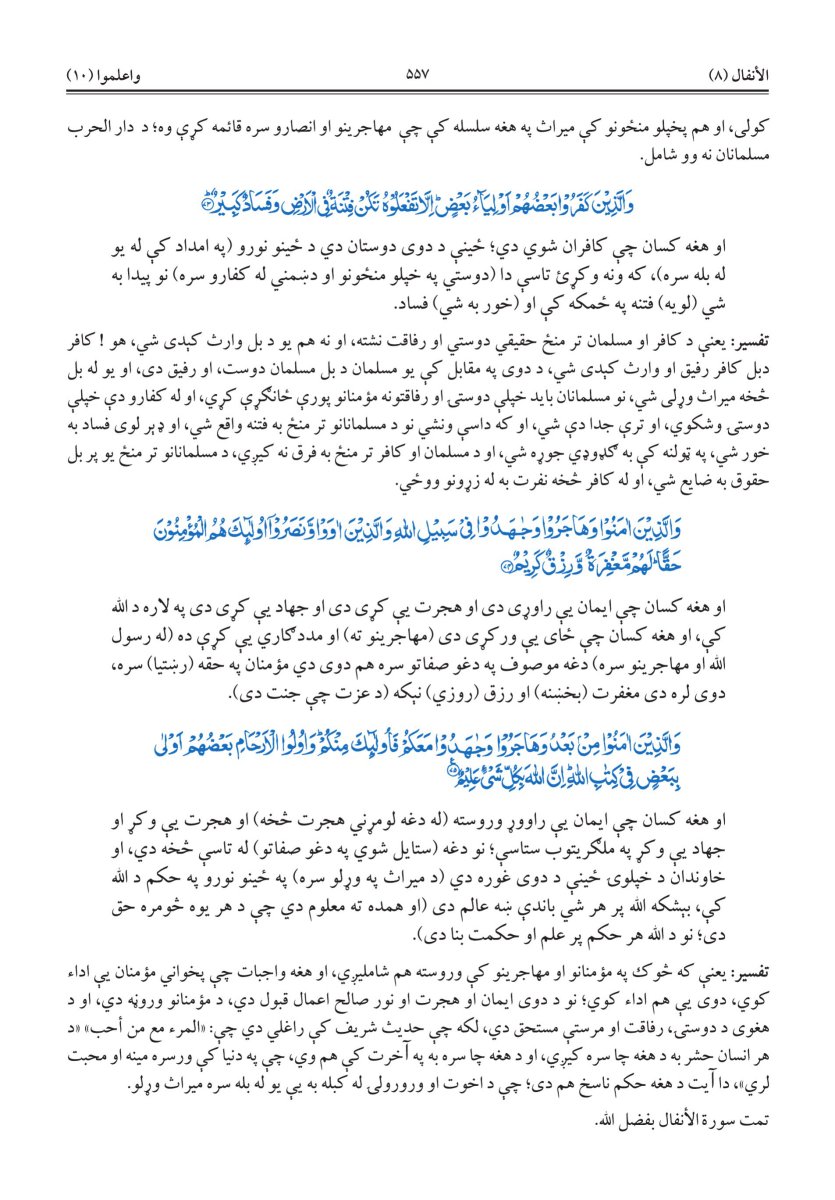 الأنفال (۸) ۵۵۷ واعلموا (۱۰)
کولی، او هم پخپلو منځونو کې میراث په هغه سلسله کې چې مهاجرینو او انصارو سره قائمه کړې وه؛ د دار الحرب
مسلمانان نه وو شامل.
وَالَّذِيْنَ كَفَرُوْا بَعْضُهُمْ اَوْلِيَآءُ بَعْضٍ ؕ اِلَّا تَفْعَلُوْهُ تَكُنْ فِتْنَةٌ فِى الْاَرْضِ وَفَسَادٌ كَبِيْرٌ ؕ۝۷۳
او هغه کسان چې کافران شوي دي؛ ځینې د دوی دوستان دي د ځینو نورو (په امداد کې له یو
له بله سره)، که ونه وکړئ تاسې دا (دوستي په خپلو منځونو او دښمني له کفارو سره) نو پیدا به
شي (لویه) فتنه په ځمکه کې او (خور به شي) فساد.
تفسیر: یعنې د کافر او مسلمان تر منځ حقیقي دوستي او رفاقت نشته، او نه هم یو د بل وارث کېدی شي، هو ! کافر
دبل کافر رفیق او وارث کېدی شي، د دوی په مقابل کې یو مسلمان د بل مسلمان دوست، او رفیق دی، او یو له بل
څخه میراث وړلی شي، نو مسلمانان باید خپلې دوستۍ او رفاقتونه مؤمنانو پورې ځانګړې کړي، او له کفارو دې خپلې
دوستۍ وشکوي، او ترې جدا دې شي، او که داسې ونشي نو د مسلمانانو تر منځ به فتنه واقع شي، او ډېر لوی فساد به
خور شي، په ټولنه کې به ګډوډي جوړه شي، او د مسلمان او کافر تر منځ به فرق نه کیږي، د مسلمانانو تر منځ یو پر بل
حقوق به ضایع شي، او له کافر څخه نفرت به له زړونو ووځي.
وَالَّذِيْنَ اٰمَنُوْا وَهَاجَرُوْا وَجٰهَدُوْا فِىْ سَبِيْلِ اللّٰهِ وَالَّذِيْنَ اٰوَوْا وَّنَصَرُوْۤا اُولٰٓئِكَ هُمُ الْمُؤْمِنُوْنَ
حَقًّا ؕ لَهُمْ مَّغْفِرَةٌ وَّرِزْقٌ كَرِيْمٌ ۝۷۴
او هغه کسان چې ایمان یې راوړی دی او هجرت یې کړی دی او جهاد یې کړی دی په لاره د الله
کې، او هغه کسان چې ځای یې ورکړی دی (مهاجرینو ته) او مددګاري یې کړې ده (له رسول
الله او مهاجرینو سره) دغه موصوف په دغو صفاتو سره هم دوی دي مؤمنان په حقه (رښتیا) سره،
دوی لره دی مغفرت (بخښنه) او رزق (روزي) نېکه (د عزت چې جنت دی).
وَالَّذِيْنَ اٰمَنُوْا مِنْۢ بَعْدُ وَهَاجَرُوْا وَجٰهَدُوْا مَعَكُمْ فَاُولٰٓئِكَ مِنْكُمْ ؕ وَاُولُوا الْاَرْحَامِ بَعْضُهُمْ اَوْلٰى
بِبَعْضٍ فِىْ كِتٰبِ اللّٰهِ ؕ اِنَّ اللّٰهَ بِكُلِّ شَىْءٍ عَلِيْمٌ ۝۷۵
او هغه کسان چې ایمان یې راووړ وروسته (له دغه لومړني هجرت څخه) او هجرت یې وکړ او
جهاد یې وکړ په ملګریتوب ستاسې؛ نو دغه (ستایل شوي په دغو صفاتو) له تاسې څخه دي، او
خاوندان د خپلوۍ ځینې د دوی غوره دي (د میراث په وړلو سره) په ځینو نورو په حکم د الله
کې، بېشکه الله پر هر شي باندې ښه عالم دی (او همده ته معلوم دي چې د هر یوه څومره حق
دی؛ نو د الله هر حکم پر علم او حکمت بنا دی).
تفسیر: یعنې که څوك په مؤمنانو او مهاجرینو کې وروسته هم شاملیږي، او هغه واجبات چې پخواني مؤمنان یې اداء
کوي، دوی یې هم اداء کوي؛ نو د دوی ایمان او هجرت او نور صالح اعمال قبول دي، د مؤمنانو وروڼه دي، او د
هغوی د دوستۍ، رفاقت او مرستې مستحق دي، لکه چې حدیث شریف کې راغلي دي چې: «المرء مع من أحب» «د
هر انسان حشر به د هغه چا سره کیږي، او د هغه چا سره به په آخرت کې هم وي، چې په دنیا کې ورسره مینه او محبت
لري»، دا آیت د هغه حکم ناسخ هم دی؛ چې د اخوت او ورورولۍ له کبله به یې یو له بله سره میراث وړلو.
تمت سورة الأنفال بفضل الله.